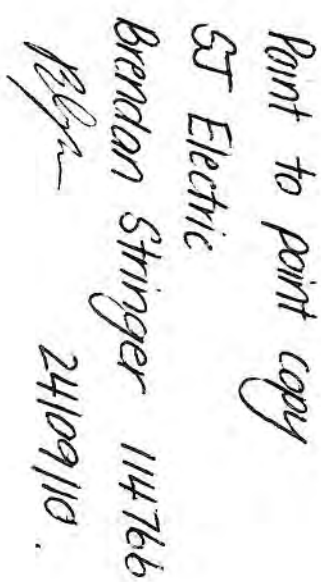 Point to point copy
SJ Electric
Brendan Stringer 114766
24/09/10.